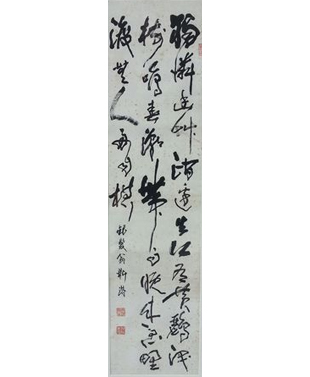 獨憐幽草澗邊生上有黃鸝深
樹鳴春潮帶雨晚來急野
渡無人舟自橫